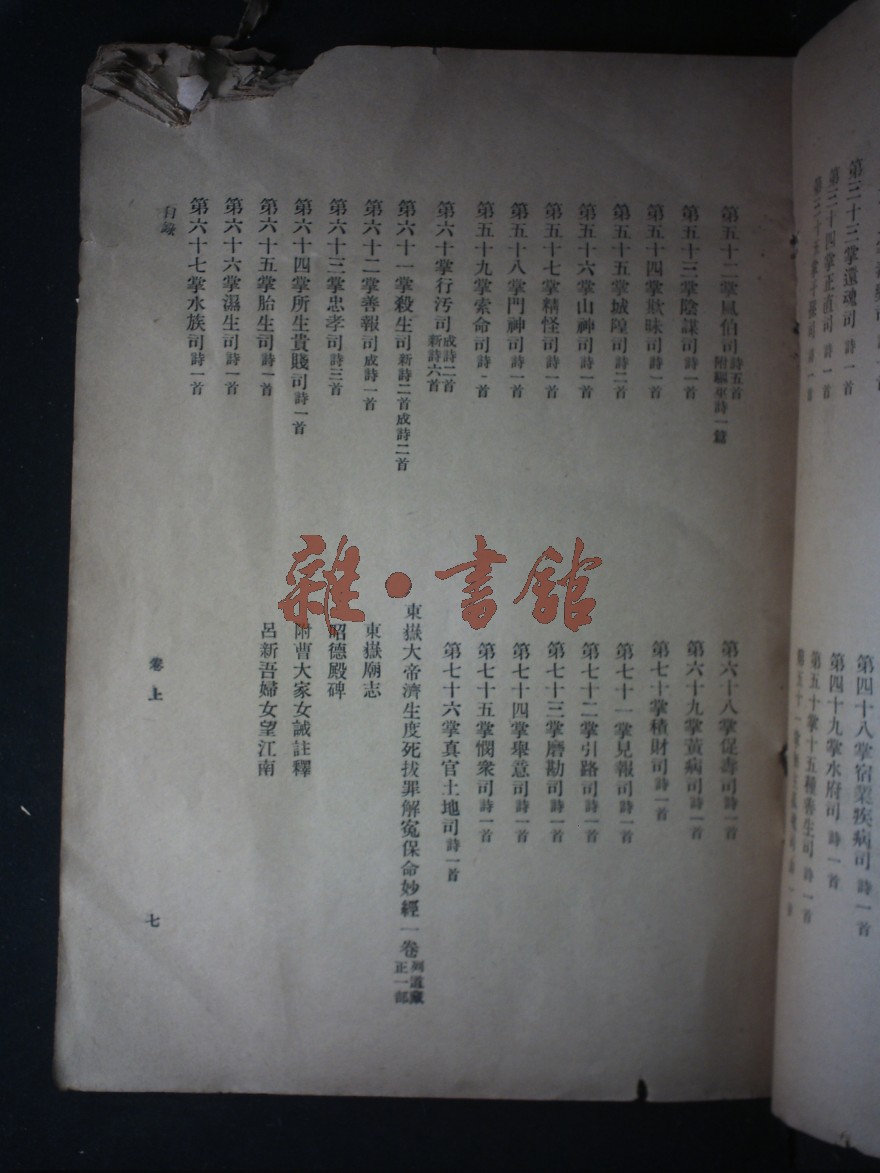 第三十三掌還魂司 詩一首
第三十四掌正直司 詩一首
第四十八掌宿業疾病司 詩一首
第四十九掌水府司 詩一首
第五十掌十五種善生司 詩一首
第五十二掌風伯司 詩五首 附驅巫詩一篇
第五十三掌陰謀司 詩一首
第五十四掌欺昧司 詩一首
第五十五掌城隍司 詩二首
第五十六掌山神司 詩一首
第五十七掌精怪司 詩一首
第五十八掌門神司 詩一首
第五十九掌索命司 詩一首
第六十掌行污司 成詩二首 新詩六首
第六十一掌殺生司 新詩二首成詩二首
第六十二掌善報司 成詩一首
第六十三掌忠孝司 詩三首
第六十四掌所生貴賤司 詩一首
第六十五掌胎生司 詩一首
第六十六掌濕生司 詩一首
第六十七掌水族司 詩一首
第六十八掌促壽司 詩一首
第六十九掌黃病司 詩一首
第七十掌積財司 詩一首
第七十一掌見報司 詩一首
第七十二掌引路司 詩一首
第七十三掌磨勘司 詩一首
第七十四掌舉意司 詩一首
第七十五掌憫衆司 詩一首
第七十六掌真官土地司 詩一首
東嶽大帝濟生度死拔罪解冤保命妙經一卷 列道藏正一部
東嶽廟志
昭德殿碑
附曹大家女誡註釋
呂新吾婦女望江南
卷上
七
雜·書館